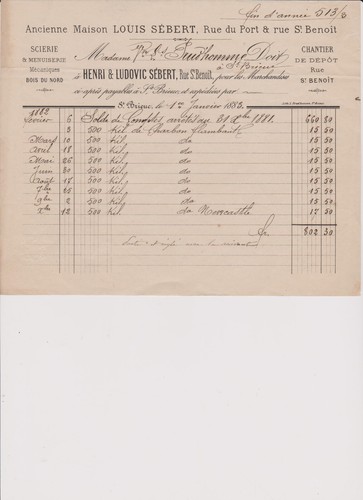 fin d'année 513/5
Ancienne Maison LOUIS SÉBERT, Rue du Port & rue St Benoît
SCIERIE
& MENUISERIE
Mécaniques
BOIS DU NORD
CHANTIER
DE DÉPÔT
Rue
St BENOÎT
Madame Prud'homme Doit
à St Brieuc
à HENRI & LUDOVIC SÉBERT, Rue St Benoît, pour les Marchandises
ci-après payables à St Brieuc, et expédiées par
St Brieuc, le 1er Janvier 1883.
1882
Janvier 6 Solde de Compte arrêté au 31 Xbre 1881. 660 80
3 500 kil. de Charbon flambant 15 50
Mars 10 500 kil. do 15 50
Avril 18 500 kil. do 15 50
Mai 26 500 kil. do 15 50
Juin 30 500 kil. do 15 50
Août 17 500 kil. do 15 50
7bre 25 500 kil. do 15 50
9bre 2 500 kil. do 15 50
Xbre 12 500 kil. do Newcastle 17 50
Fr. 802 30